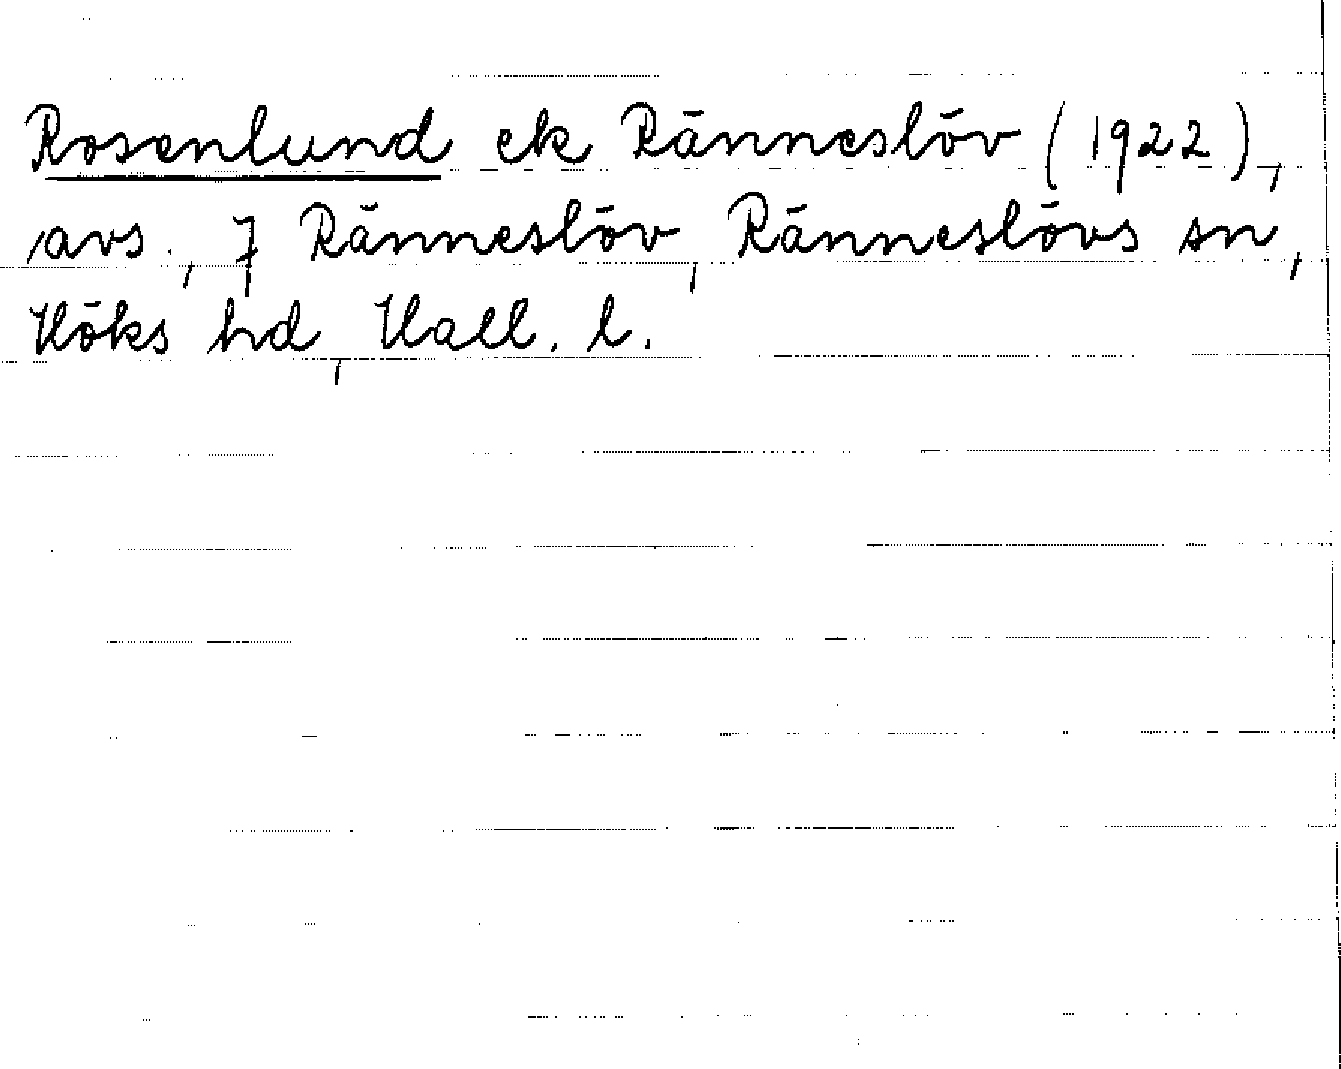 Rosenlund ek Ränneslöv (1922),
avs., 7 Ränneslöv, Ränneslövs sn,
Höks hd, Hall. l.